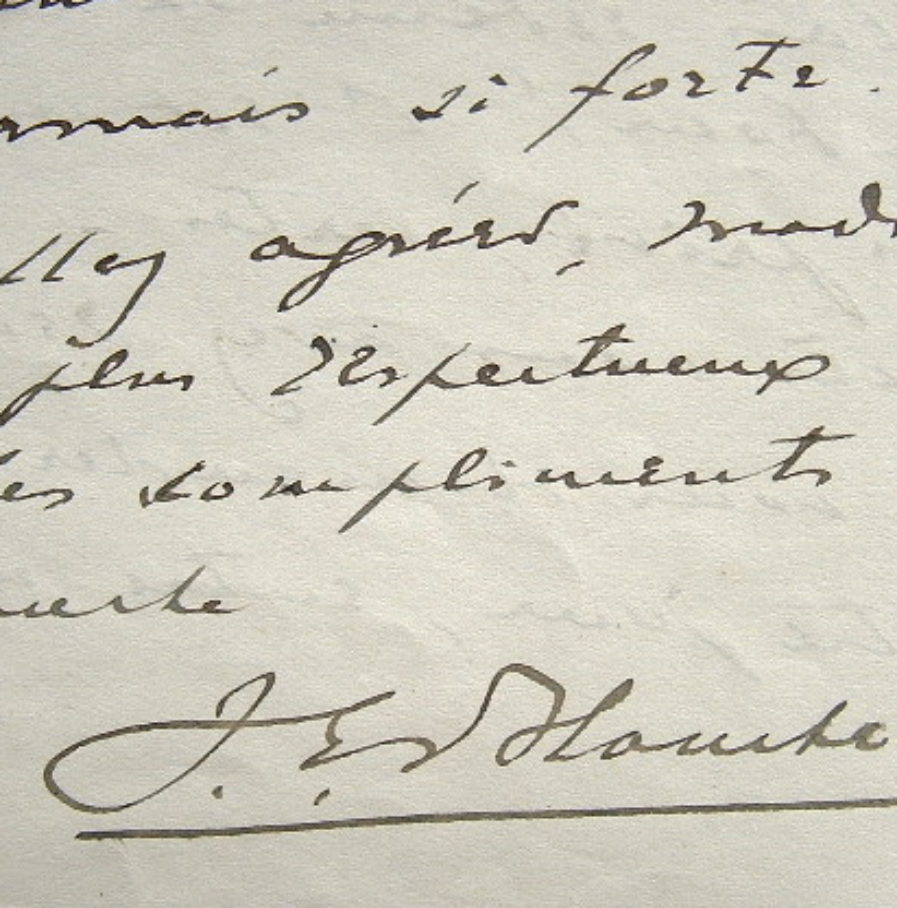 rmais si forte.
llez agréer, mad
plus respectueux
les compliments
J. E. Blanche